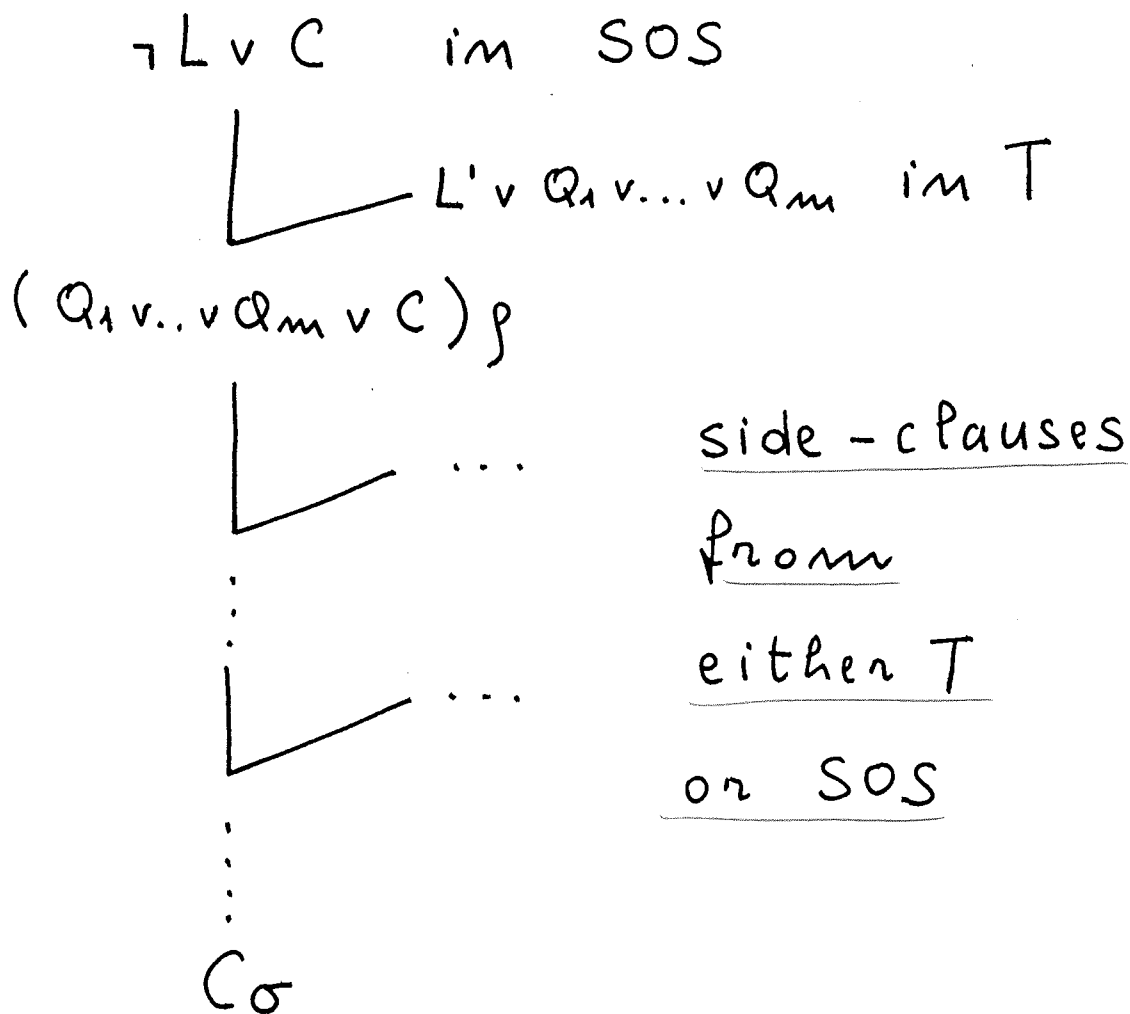 ¬L ∨ C in SOS
L' ∨ Q₁ ∨...∨ Qₘ in T
(Q₁ ∨..∨ Qₘ ∨ C)ρ
...
side-clauses
from
...
either T
or SOS
Cσ